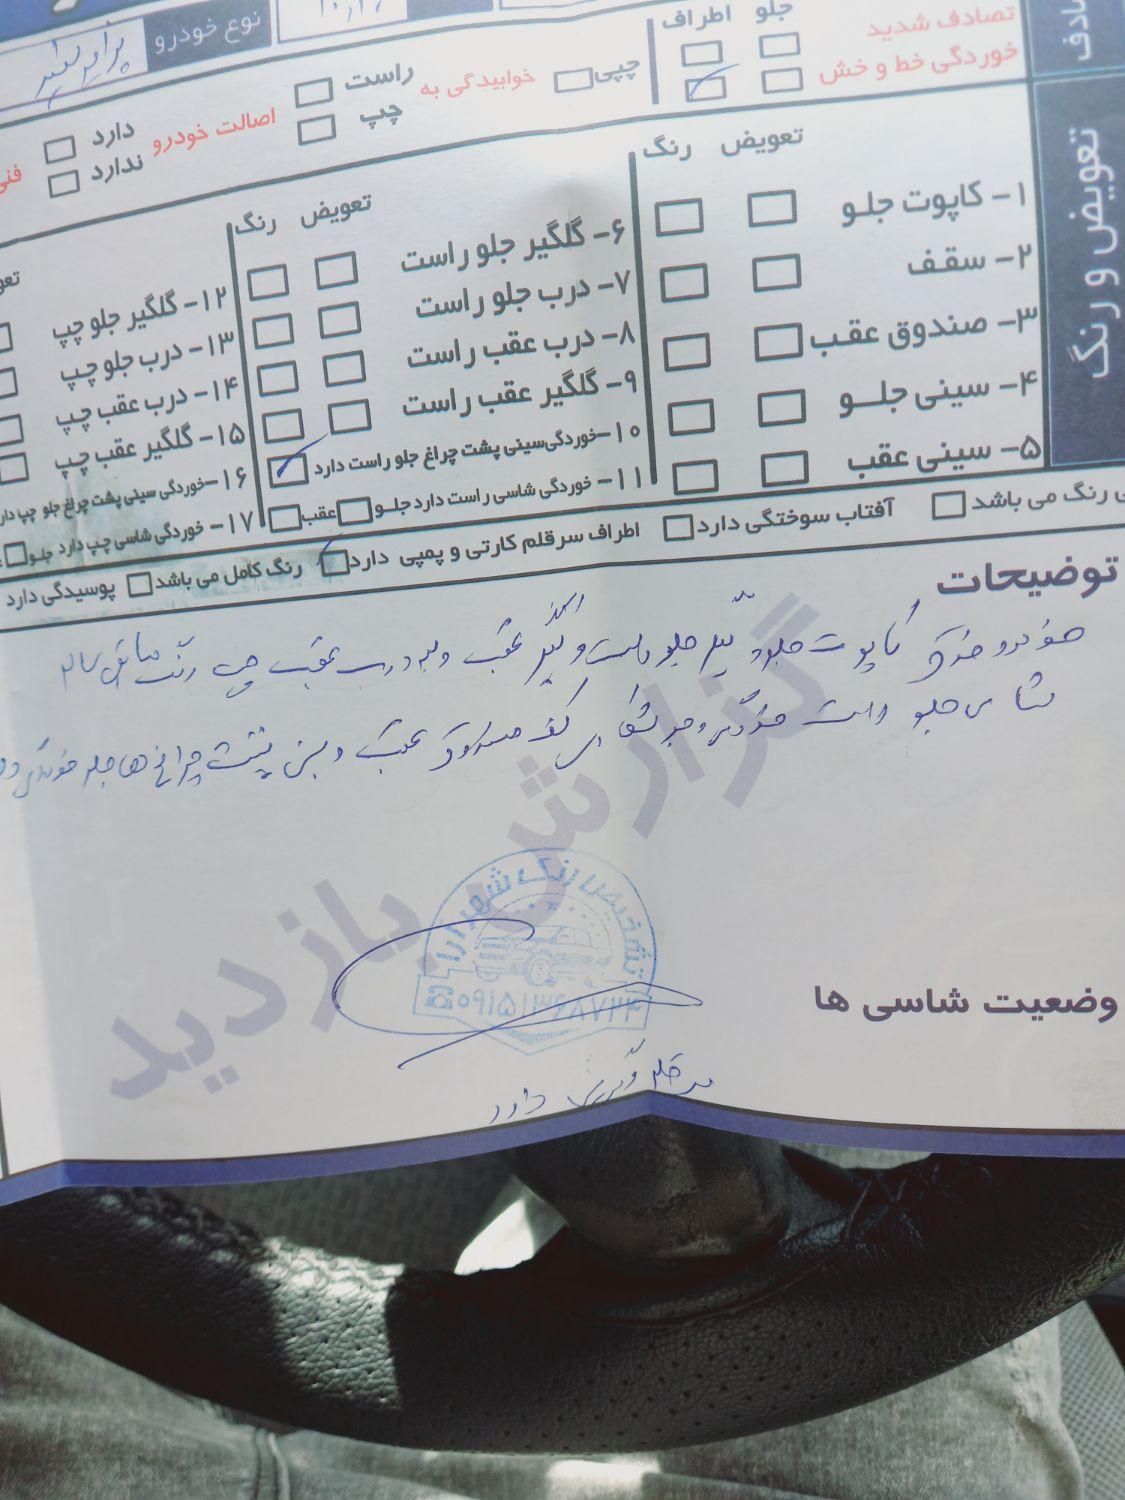 نوع خودرو
تصادف شدید
جلو اطراف
خوردگی خط و خش
چپی
خوابیدگی به راست
چپ
اصالت خودرو دارد
ندارد
فنی
تعویض و رنگ
تعویض رنگ
۱- کاپوت جلو
۲- سقف
۳- صندوق عقب
۴- سینی جلو
۵- سینی عقب
تعویض رنگ
۶- گلگیر جلو راست
۷- درب جلو راست
۸- درب عقب راست
۹- گلگیر عقب راست
۱۰- خوردگی سینی پشت چراغ جلو راست دارد
۱۱- خوردگی شاسی راست دارد جلو عقب
۱۲- گلگیر جلو چپ
۱۳- درب جلو چپ
۱۴- درب عقب چپ
۱۵- گلگیر عقب چپ
۱۶- خوردگی سینی پشت چراغ جلو چپ
۱۷- خوردگی شاسی چپ دارد جلو
رنگ می باشد
آفتاب سوختگی دارد
اطراف سرقلم کارتی و پمپی دارد
رنگ کامل می باشد
پوسیدگی دارد
توضیحات
کاپوت جلو جلو راست و گلگیر عقب درب عقب چپ رنگ
جلو راست کف صندوق عقب و سینی پشت چراغ ها جلو
گزارش بازدید
تشخیص رنگ شهرآرا
۰۹۱۵۱۳۶۸۷۲۴
وضعیت شاسی ها
دارد